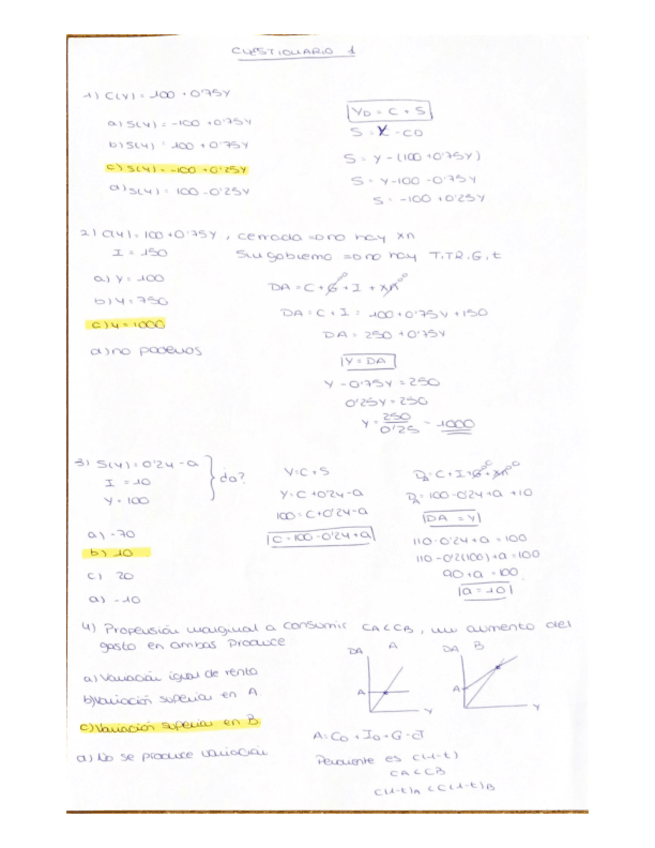 CUESTIONARIO 1
1) C(Y) = 100 + 0'75Y
a) S(Y) = -100 + 0'75Y
b) S(Y) = 100 + 0'75Y
c) S(Y) = -100 + 0'25Y
d) S(Y) = 100 - 0'25Y
YD = C + S
S = Y - CD
S = Y - (100 + 0'75Y)
S = Y - 100 - 0'75Y
S = -100 + 0'25Y
2) C(Y) = 100 + 0'75Y, cerrada => no hay XN
I = 150
Sin gobierno => no hay T, TR, G, t
a) Y = 100
b) Y = 750
c) Y = 1000
d) no podemos
DA = C + G + I + XN
DA = C + I = 100 + 0'75Y + 150
DA = 250 + 0'75Y
Y = DA
Y - 0'75Y = 250
0'25Y = 250
Y = 250 / 0'25 = 1000
3) S(Y) = 0'2Y - a
I = 10
Y = 100
¿a?
a) -70
b) 10
c) 20
d) -10
Y = C + S
Y = C + 0'2Y - a
100 = C + 0'2Y - a
C = 100 - 0'2Y + a
DA = C + I + G + XN
DA = 100 - 0'2Y + a + 10
DA = Y
110 - 0'2Y + a = 100
110 - 0'2(100) + a = 100
90 + a = 100
a = 10
4) Propensión marginal a consumir CA < CB, un aumento del
gasto en ambas produce
a) Variación igual de renta
b) Variación superior en A
c) Variación superior en B
d) No se produce variación
DA A
A
Y
DA B
A
Y
A = C0 + I0 + G - cT
Pendiente es c(1-t)
CA < CB
c(1-t)A < c(1-t)B